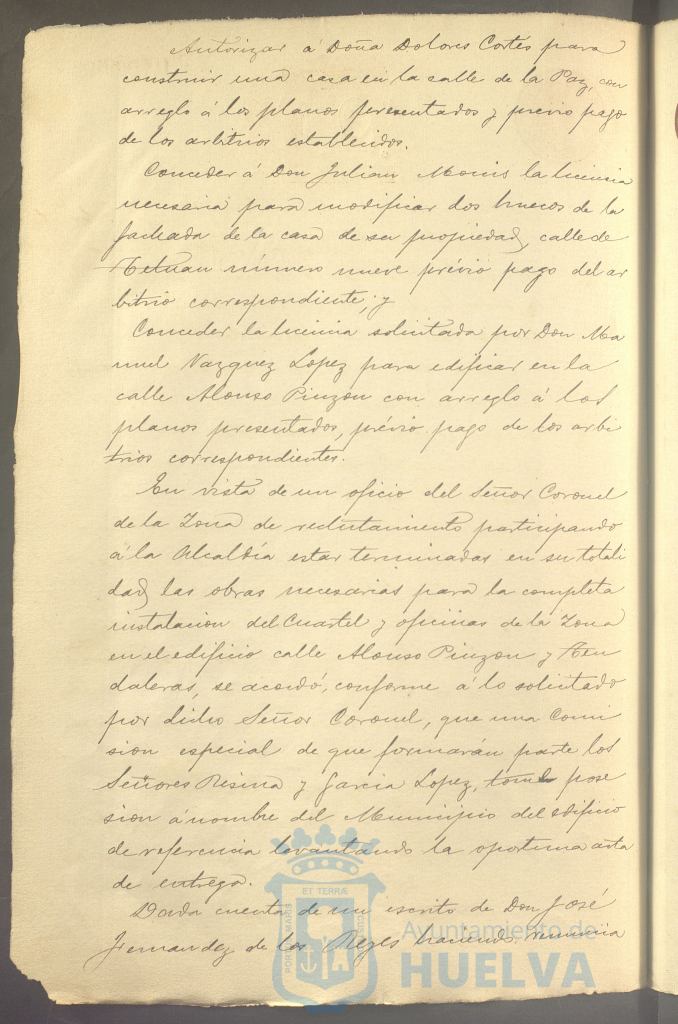 Autorizar á Doña Dolores Cortés para
construir una casa en la calle de la Paz, con
arreglo á los planos presentados y previo pago
de los arbitrios establecidos.
Conceder á Don Julian Monis la licencia
necesaria para modificar dos huecos de la
fachada de la casa de su propiedad, calle de
Tetuan número nueve prévio pago del ar
bitrio correspondiente; y
Conceder la licencia solicitada por Don Ma
nuel Vazquez Lopez para edificar en la
calle Alonso Pinzon con arreglo á los
planos presentados, prévio pago de los arbi
trios correspondientes.
En vista de un oficio del Señor Coronel
de la Zona de reclutamiento participando
á la Alcaldía estar terminadas en su totali
dad las obras necesarias para la completa
instalacion del Cuartel y oficinas de la Zona
en el edificio calle Alonso Pinzon y Ten
daleras, se acordó, conforme á lo solicitado
por dicho Señor Coronel, que una Comi
sion especial de que formarán parte los
Señores Resina y Garcia Lopez, tome pose
sion á nombre del Municipio del edificio
de referencia levantando la oportuna acta
de entrega.
Dada cuenta de un escrito de Don José
Fernandez de los Reyes haciendo renuncia
ET TERRÆ
PORTUS MARIS
CUSTODIA
Ayuntamiento de
HUELVA